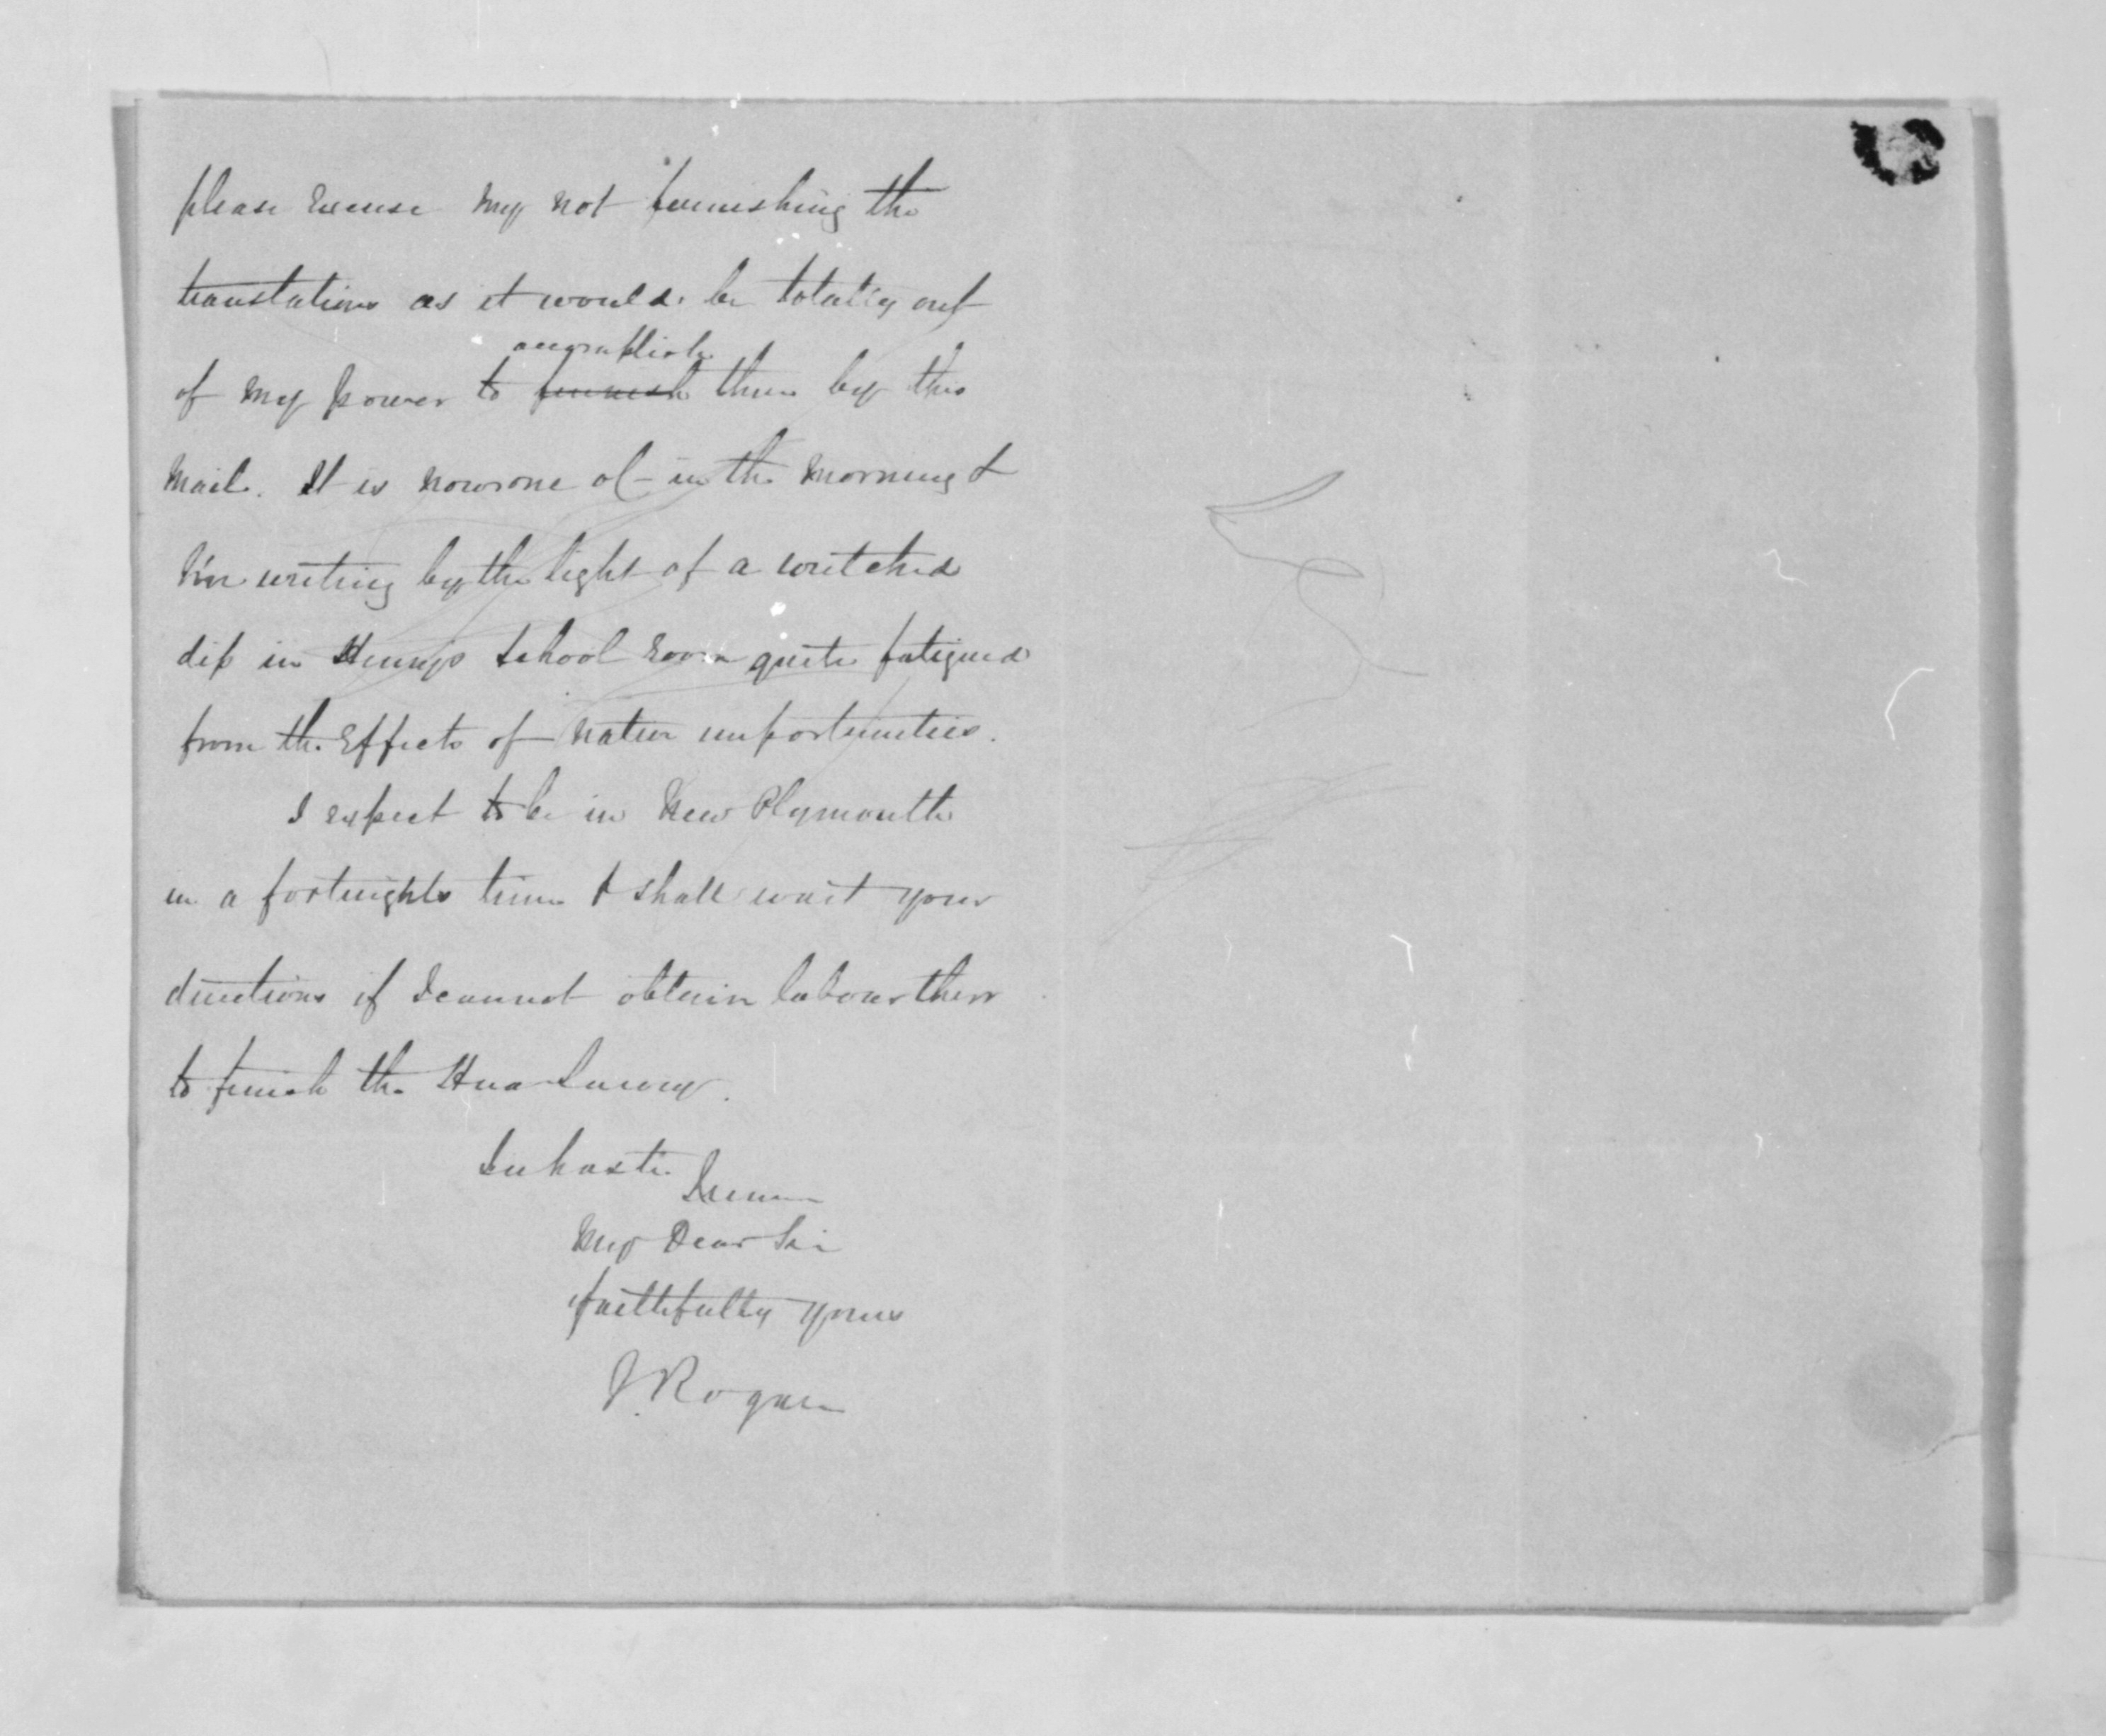 please excuse my not furnishing the
translations as it would be totally out
accomplish
of my power to furnish them by this
mail. It is now one oC in the morning &
I'm writing by the light of a wretched
dip in Henry's School room quite fatigued
from the effects of native importunities.
I expect to be in New Plymouth
in a fortnights time & shall wait your
directions if I cannot obtain labour there
to finish the Hua Survey.
In haste
I remain
My Dear Sir
faithfully yours
J. Rogan